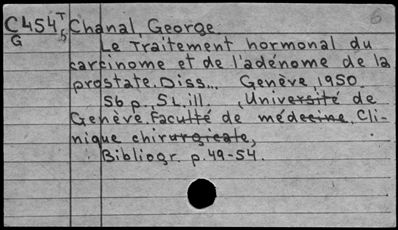 6
C454 T Chanal, George.
G 5 Le Traitement hormonal du
carcinome et de l'adénome de la
prostate. Diss... Genève 1950.
56 p., 5 L. ill. , Université de
Genève. Faculté de médecine. Cli-
nique chirurgicale,
Bibliogr. p. 49-54.